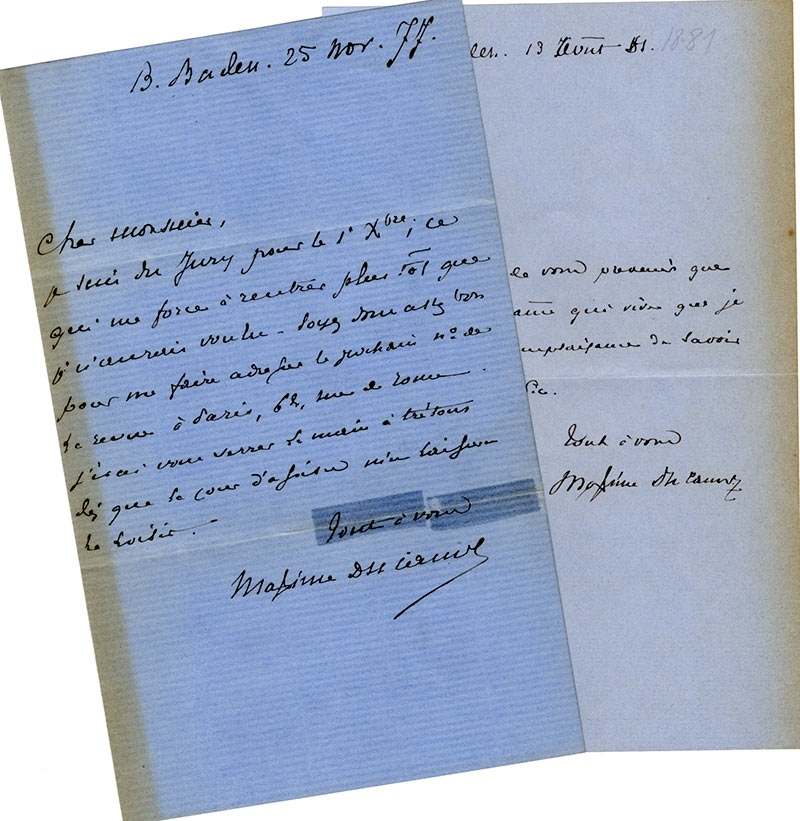 B. Baden. 25 Nov. 77.
Cher Monsieur,
je suis du Jury pour le 1er Xbre; ce
qui me force à rentrer plus tôt que
je n'aurais voulu - Soyez donc assez bon
pour me faire adresser le prochain no. de
la revue à Paris, 62, rue de Rome.
J'irai vous serrer la main à tous
dès que la cour d'assises m'en laissera
le loisir. -
Tout à vous
Maxime Du Camp
den. 13 Août 81. 1881
de vous prévenir que
qui vive que je
complaisance de savoir
Tout à vous
Maxime Du Camp